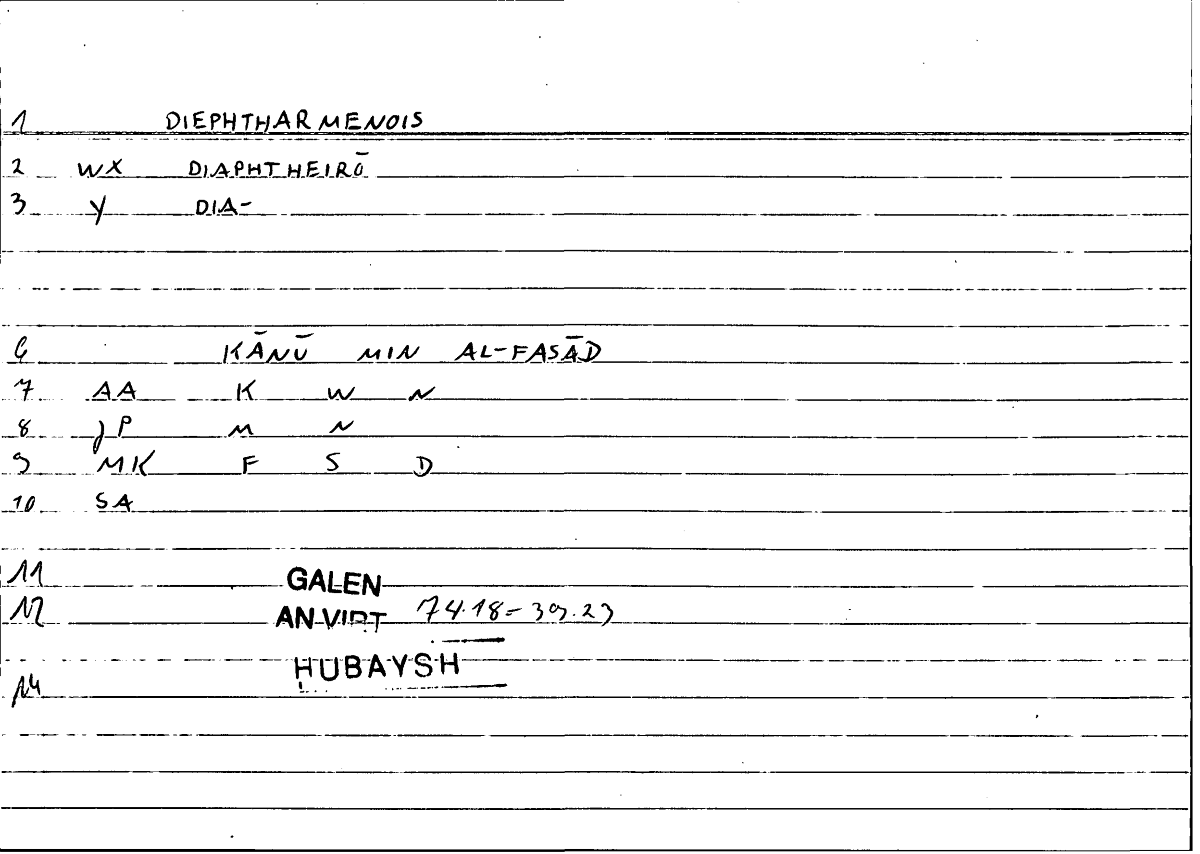 1 DIEPHTHARMENOIS
2 WX DIAPHTHEIRŌ
3 Y DIA-
6 KĀNŪ MIN AL-FASĀD
7 AA K W N
8 JP M N
9 MK F S D
10 SA
11 GALEN
12 AN VIRT 74.18 = 39.23
ḤUBAYSH
14